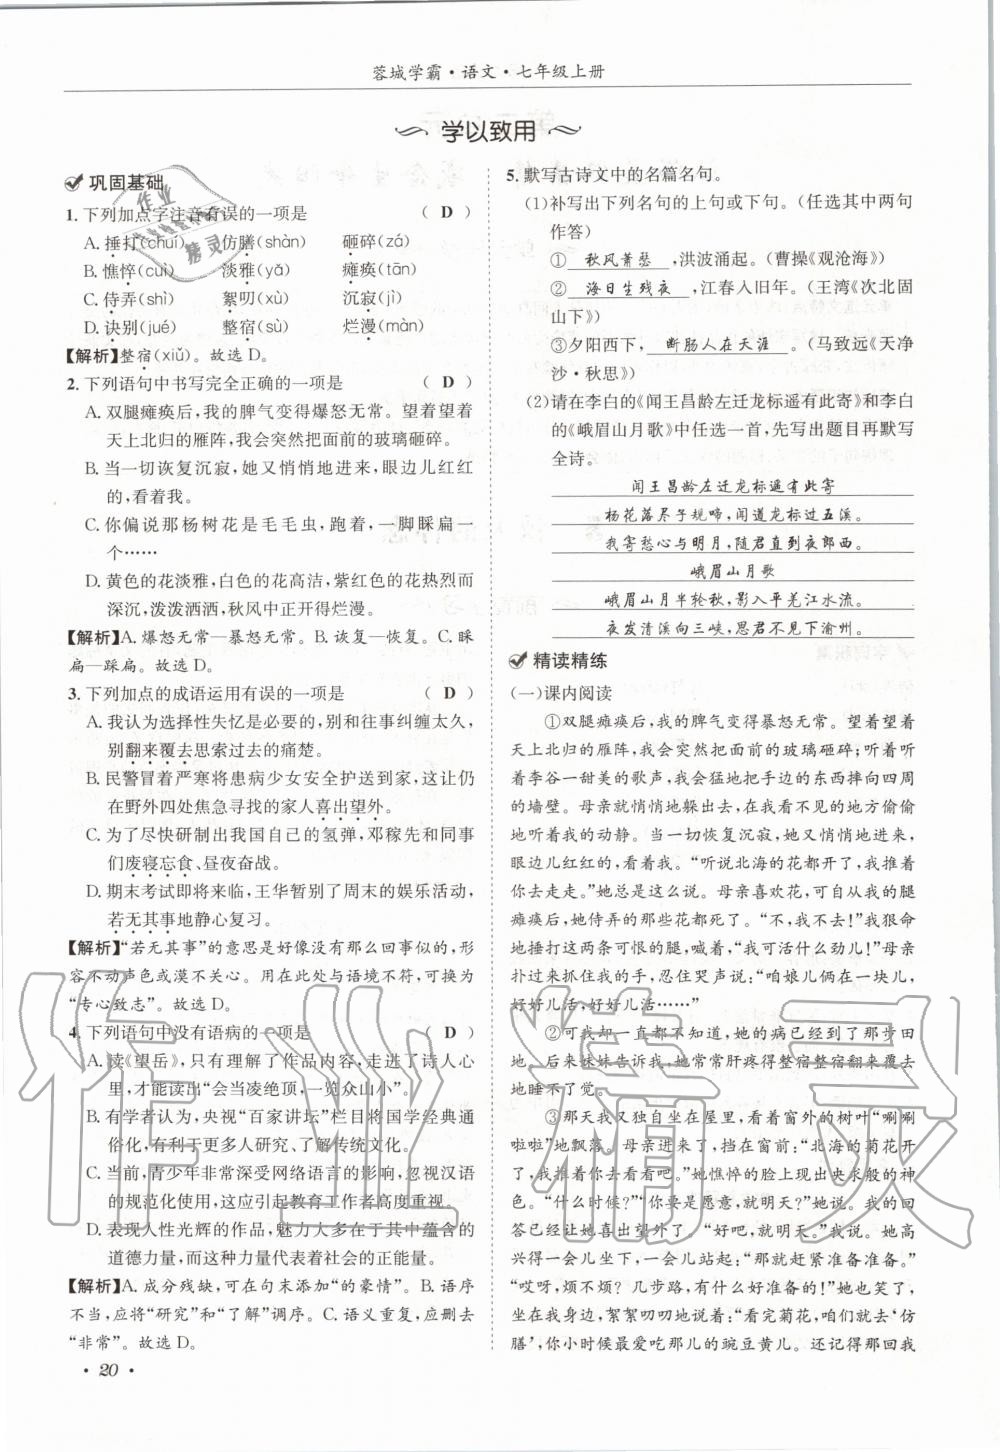 蓉城学霸·语文·七年级上册
学以致用
巩固基础
1. 下列加点字注音有误的一项是 ( D )
A. 捶打(chuí) 仿膳(shàn) 砸碎(zá)
B. 憔悴(cuì) 淡雅(yǎ) 瘫痪(tān)
C. 侍弄(shì) 絮叨(xù) 沉寂(jì)
D. 诀别(jué) 整宿(sù) 烂漫(màn)
【解析】整宿(xiǔ)。故选 D。
2. 下列语句中书写完全正确的一项是 ( D )
A. 双腿瘫痪后,我的脾气变得爆怒无常。望着望着
天上北归的雁阵,我会突然把面前的玻璃砸碎。
B. 当一切恢复沉寂,她又悄悄地进来,眼边儿红红
的,看着我。
C. 你偏说那杨树花是毛毛虫,跑着,一脚睬扁一
个……
D. 黄色的花淡雅,白色的花高洁,紫红色的花热烈而
深沉,泼泼洒洒,秋风中正开得烂漫。
【解析】A. 爆怒无常—暴怒无常。B. 诙复—恢复。C. 睬
扁—踩扁。故选 D。
3. 下列加点的成语运用有误的一项是 ( D )
A. 我认为选择性失忆是必要的,别和往事纠缠太久,
别翻来覆去思索过去的痛楚。
B. 民警冒着严寒将患病少女安全护送到家,这让仍
在野外四处焦急寻找的家人喜出望外。
C. 为了尽快研制出我国自己的氢弹,邓稼先和同事
们废寝忘食、昼夜奋战。
D. 期末考试即将来临,王华暂别了周末的娱乐活动,
若无其事地静心复习。
【解析】“若无其事”的意思是好像没有那么回事似的,形
容不动声色或漠不关心。用在此处与语境不符,可换为
“专心致志”。故选 D。
4. 下列语句中没有语病的一项是 ( D )
A. 读《望岳》,只有理解了作品内容,走进了诗人心
里,才能读出“会当凌绝顶,一览众山小”。
B. 有学者认为,央视“百家讲坛”栏目将国学经典通
俗化,有利于更多人研究、了解传统文化。
C. 当前,青少年非常深受网络语言的影响,忽视汉语
的规范化使用,这应引起教育工作者高度重视。
D. 表现人性光辉的作品,魅力大多在于其中蕴含的
道德力量,而这种力量代表着社会的正能量。
【解析】A. 成分残缺,可在句末添加“的豪情”。B. 语序
不当,应将“研究”和“了解”调序。C. 语义重复,应删去
“非常”。故选 D。
· 20 ·
5. 默写古诗文中的名篇名句。
(1)补写出下列名句的上句或下句。(任选其中两句
作答)
① 秋风萧瑟 ,洪波涌起。(曹操《观沧海》)
② 海日生残夜 ,江春入旧年。(王湾《次北固
山下》)
③夕阳西下, 断肠人在天涯 。(马致远《天净
沙·秋思》)
(2)请在李白的《闻王昌龄左迁龙标遥有此寄》和李白
的《峨眉山月歌》中任选一首,先写出题目再默写
全诗。
闻王昌龄左迁龙标遥有此寄
杨花落尽子规啼,闻道龙标过五溪。
我寄愁心与明月,随君直到夜郎西。
峨眉山月歌
峨眉山月半轮秋,影入平羌江水流。
夜发清溪向三峡,思君不见下渝州。
精读精练
(一)课内阅读
①双腿瘫痪后,我的脾气变得暴怒无常。望着望着
天上北归的雁阵,我会突然把面前的玻璃砸碎;听着听
着李谷一甜美的歌声,我会猛地把手边的东西摔向四周
的墙壁。母亲就悄悄地躲出去,在我看不见的地方偷偷
地听着我的动静。当一切恢复沉寂,她又悄悄地进来,
眼边儿红红的,看着我。“听说北海的花都开了,我推着
你去走走。”她总是这么说。母亲喜欢花,可自从我的腿
瘫痪后,她侍弄的那些花都死了。“不,我不去!”我狠命
地捶打这两条可恨的腿,喊着,“我可活什么劲儿!”母亲
扑过来抓住我的手,忍住哭声说:“咱娘儿俩在一块儿,
好好儿活,好好儿活……”
②可我却一直都不知道,她的病已经到了那步田
地。后来妹妹告诉我,她常常肝疼得整宿整宿翻来覆去
地睡不了觉。
③那天我又独自坐在屋里,看着窗外的树叶“唰唰
啦啦”地飘落。母亲进来了,挡在窗前:“北海的菊花开
了,我推着你去看看吧。”她憔悴的脸上现出央求般的神
色。“什么时候?”“你要是愿意,就明天?”她说。我的回
答已经让她喜出望外了。“好吧,就明天。”我说。她高
兴得一会儿坐下,一会儿站起:“那就赶紧准备准备。”
“哎呀,烦不烦?几步路,有什么好准备的!”她也笑了,
坐在我身边,絮絮叨叨地说着:“看完菊花,咱们就去‘仿
膳’,你小时候最爱吃那儿的豌豆黄儿。还记得那回我